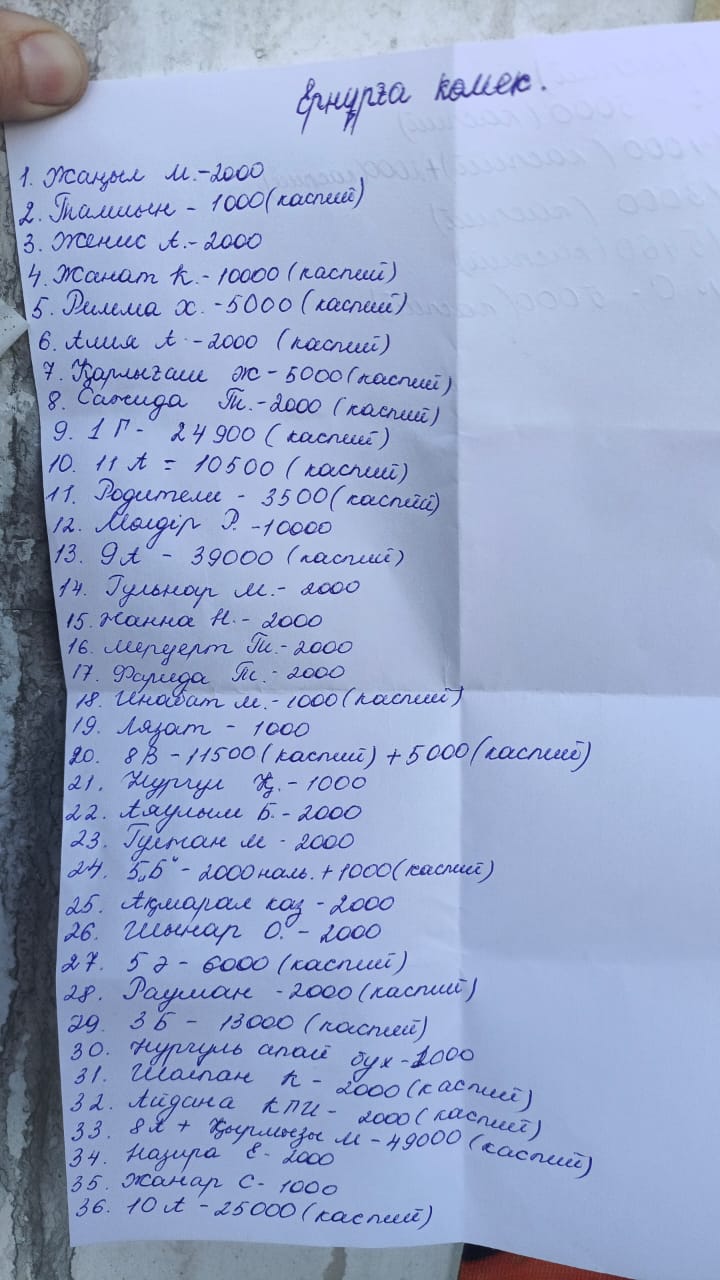 Ернұрға көмек.
1. Жаңыл М. - 2000
2. Тамшын - 1000 (каспий)
3. Женис А. - 2000
4. Жанат К. - 10000 (каспий)
5. Римма Х. - 5000 (каспий)
6. Алия А - 2000 (каспий)
7. Қарлығаш Ж - 5000 (каспий)
8. Сажида Т. - 2000 (каспий)
9. 1 Г - 24 900 (каспий)
10. 11 А = 10500 (каспий)
11. Родители - 3500 (каспий)
12. Мөлдір Р. - 10000
13. 9А - 39000 (каспий)
14. Гульнар М. - 2000
15. Жанна Н. - 2000
16. Меруерт Т. - 2000
17. Фарида Т. - 2000
18. Инабат М. - 1000 (каспий)
19. Лязат - 1000
20. 8 В - 11500 (каспий) + 5000 (каспий)
21. Нургул Қ. - 1000
22. Аяулым Б. - 2000
23. Гулжан М - 2000
24. 5 „Б“ - 2000 наль. + 1000 (каспий)
25. Ақмарал каз - 2000
26. Шынар О. - 2000
27. 5 Ә - 6000 (каспий)
28. Рауман - 2000 (каспий)
29. 3 Б - 13000 (каспий)
30. Нургуль апай бух - 1000
31. Шолпан К - 2000 (каспий)
32. Айдана КПИ - 2000 (каспий)
33. 8А + Қырмызы М - 49000 (каспий)
34. Назира Е - 2000
35. Жанар С - 1000
36. 10 А - 25000 (каспий)